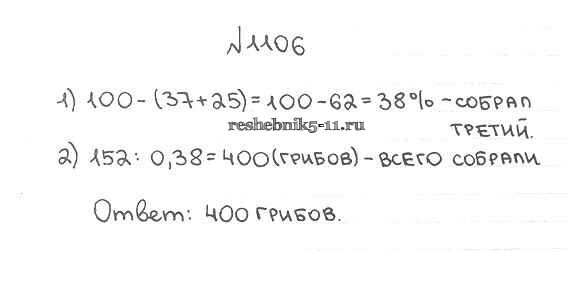 №1106
1) 100-(37+25)=100-62=38% - СОБРАЛ
reshebnik5-11.ru
ТРЕТИЙ.
2) 152: 0,38=400(ГРИБОВ) - ВСЕГО СОБРАЛИ
Ответ: 400 ГРИБОВ.